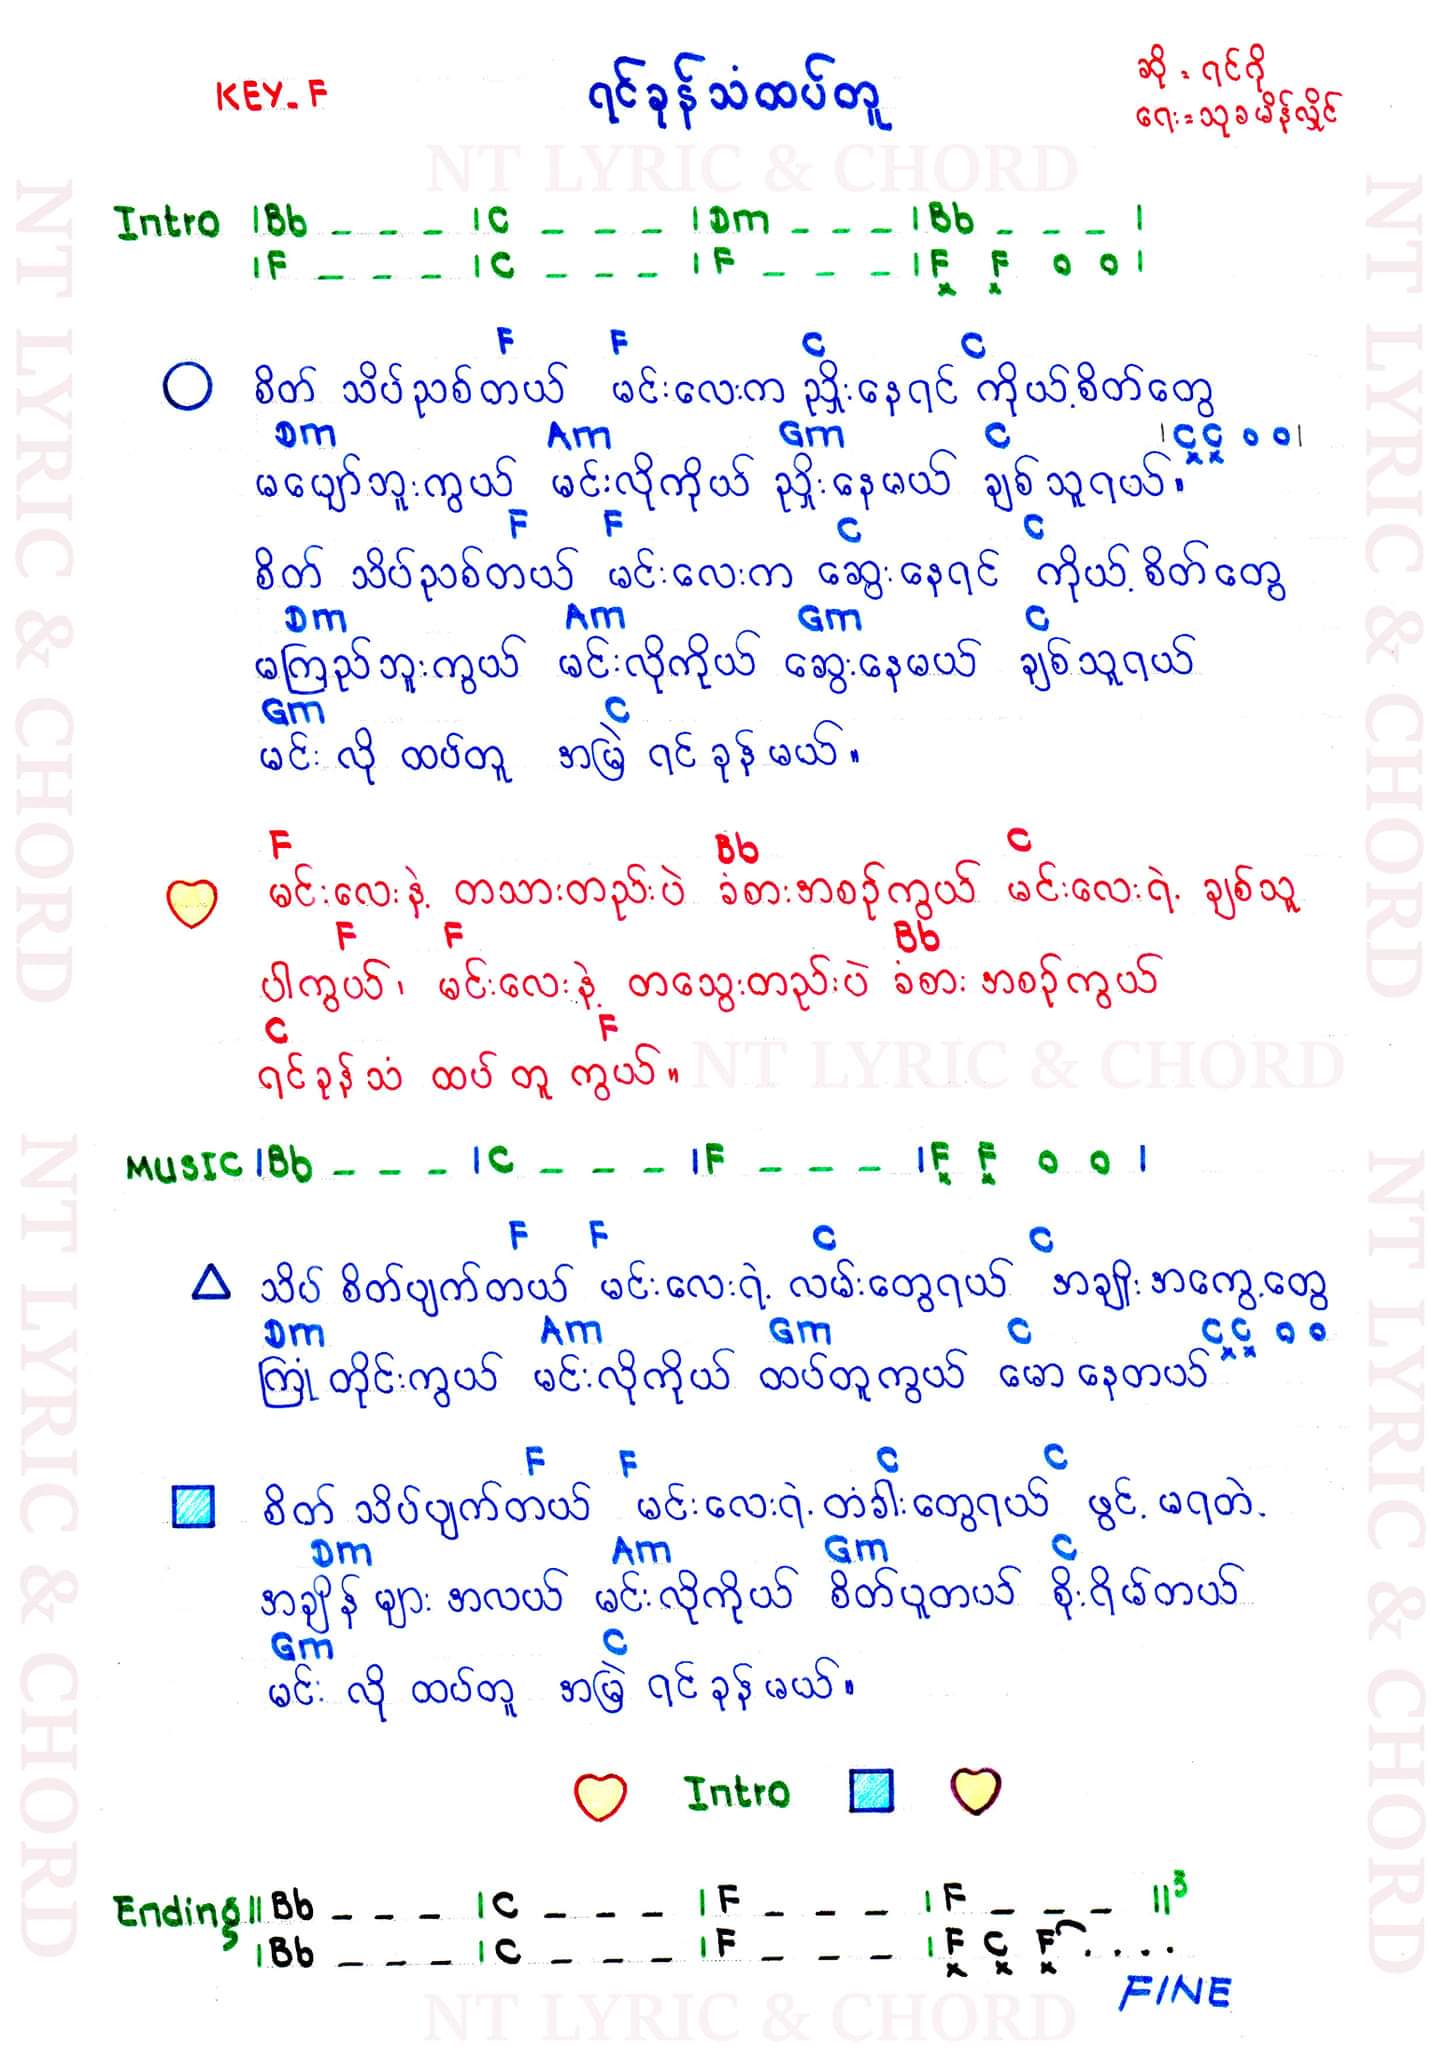 KEY-F
ရင်ခုန်သံထပ်တူ
ဆို = ရင်ဂို
ရေး = သုခမိန်လှိုင်
NT LYRIC & CHORD
Intro |Bb _ _ _ |C _ _ _ |Dm _ _ _ |Bb _ _ _ |
|F _ _ _ |C _ _ _ |F _ _ _ |F F 0 0 |
F F C C
စိတ် သိပ်ညစ်တယ် မင်းလေးက ညှိုးနေရင် ကိုယ့်စိတ်တွေ
Dm Am Gm C |C C 0 0|
မပျော်ဘူးကွယ် မင်းလိုကိုယ် ညှိုးနေမယ် ချစ်သူရယ်။
F F C C
စိတ် သိပ်ညစ်တယ် မင်းလေးက ဆွေးနေရင် ကိုယ့်စိတ်တွေ
Dm Am Gm C
မကြည်ဘူးကွယ် မင်းလိုကိုယ် ဆွေးနေမယ် ချစ်သူရယ်
Gm C
မင်းလို ထပ်တူ အမြဲ ရင်ခုန်မယ်။
F Bb C
မင်းလေးနဲ့ တသားတည်းပဲ ခံစားအစဉ်ကွယ် မင်းလေးရဲ့ ချစ်သူ
F F Bb
ပါကွယ်၊ မင်းလေးနဲ့ တသွေးတည်းပဲ ခံစား အစဉ်ကွယ်
C F
ရင်ခုန်သံ ထပ်တူကွယ်။
NT LYRIC & CHORD
MUSIC |Bb _ _ _ |C _ _ _ |F _ _ _ |F F 0 0 |
F F C C
သိပ် စိတ်ပျက်တယ် မင်းလေးရဲ့ လမ်းတွေရယ် အချိုးအကွေ့တွေ
Dm Am Gm C C C 0 0
ကြုံတိုင်းကွယ် မင်းလိုကိုယ် ထပ်တူကွယ် မောနေတယ်
F F C C
စိတ် သိပ်ပျက်တယ် မင်းလေးရဲ့ တံခါးတွေရယ် ဖွင့်မရတဲ့
Dm Am Gm C
အချိန်များအလယ် မင်းလိုကိုယ် စိတ်ပူတယ် စိုးရိမ်တယ်
Gm C
မင်းလို ထပ်တူ အမြဲ ရင်ခုန်မယ်။
Intro
Ending ||Bb _ _ _ |C _ _ _ |F _ _ _ |F _ _ _ ||3
|Bb _ _ _ |C _ _ _ |F _ _ _ |F C F . . . .
FINE
NT LYRIC & CHORD
NT LYRIC & CHORD
NT LYRIC & CHORD
NT LYRIC & CHORD
NT LYRIC & CHORD